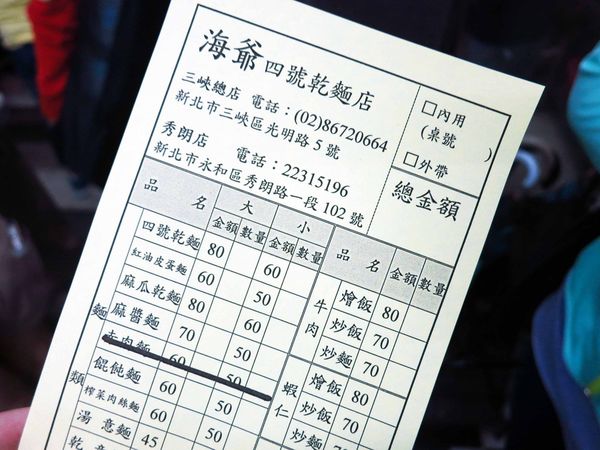 海爺四號乾麵店
三峽總店 電話：(02)86720664
新北市三峽區光明路5號
秀朗店 電話：22315196
新北市永和區秀朗路一段102號
□內用
(桌號 )
□外帶
總金額
品 名 大 小
金額 數量 金額 數量
四號乾麵 80 60
紅油皮蛋麵 60 50
麻瓜乾麵 80 60
麻醬麵 70 50
肉麵 60 50
餛飩麵 60 50
榨菜肉絲麵 60 50
湯意麵 45
乾意
麵類
品 名 金額 數量
牛肉
燴飯 80
炒飯 70
炒麵 70
蝦仁
燴飯 80
炒飯 70
炒麵 70